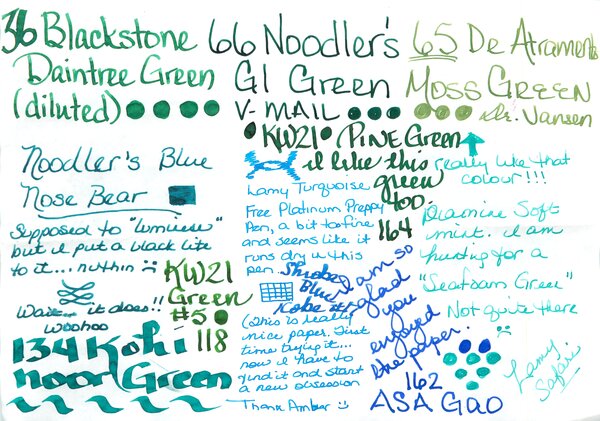 36 Blackstone
Daintree Green
(diluted)
66 Noodler's
GI Green
V-MAIL
65 De Atrament
Moss Green
Dr. Jansen
KW21 Pine Green
i like this
green
too.
164
really like that
colour!!!
Noodler's Blue
Nose Bear
Supposed to "luminese"
but i put a black lite
to it... nuthin :(
Wait... it does!!
woohoo
KW21
Green
#5
118
134 Kohi
noor Green
Lamy Turquoise
Free Platinum Preppy
Pen, a bit too fine
and seems like it
runs dry in this
pen.
Shiobe
Blue
Kobe #1
(this is really
nice paper. First
time trying it...
now i have to
find it and start
a new obsession
Thanx Amber :)
I am so
glad
you
enjoyed
the paper.
162
ASA Gao
Diamine Soft
mint. i am
hunting for a
"Seafoam Green"
Not quite there
Lamy
Safari